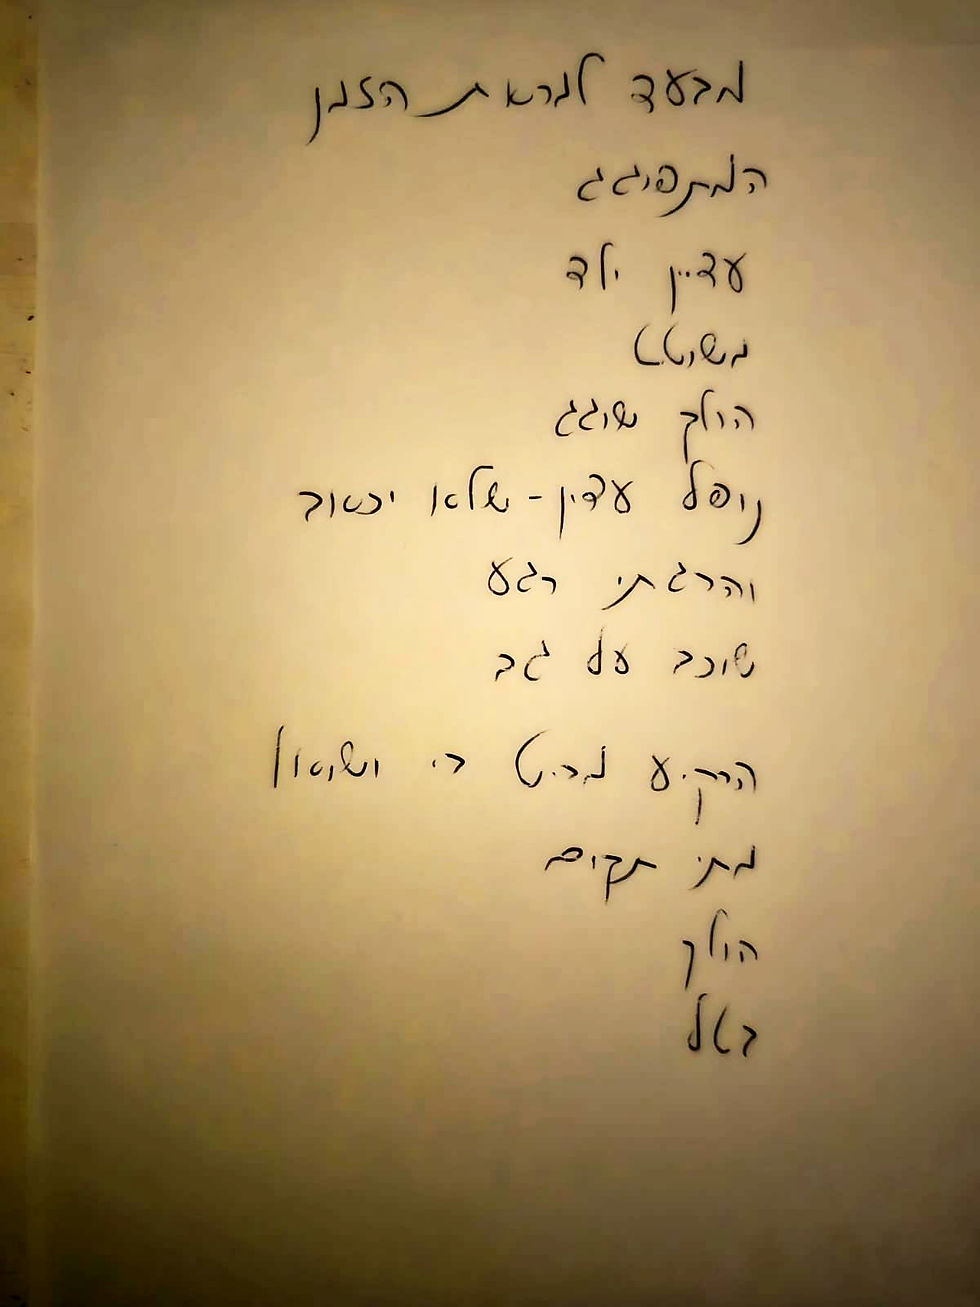 מבעד למראת הזמן
המתפוגג
עדיין ילד
משוטט
הולך שוגג
נופל עדין - שלא יכאב
והרגתי רגע
שוכב על גב
הרקיע מביט בי ושואל
מתי תקום
הולך
בטל